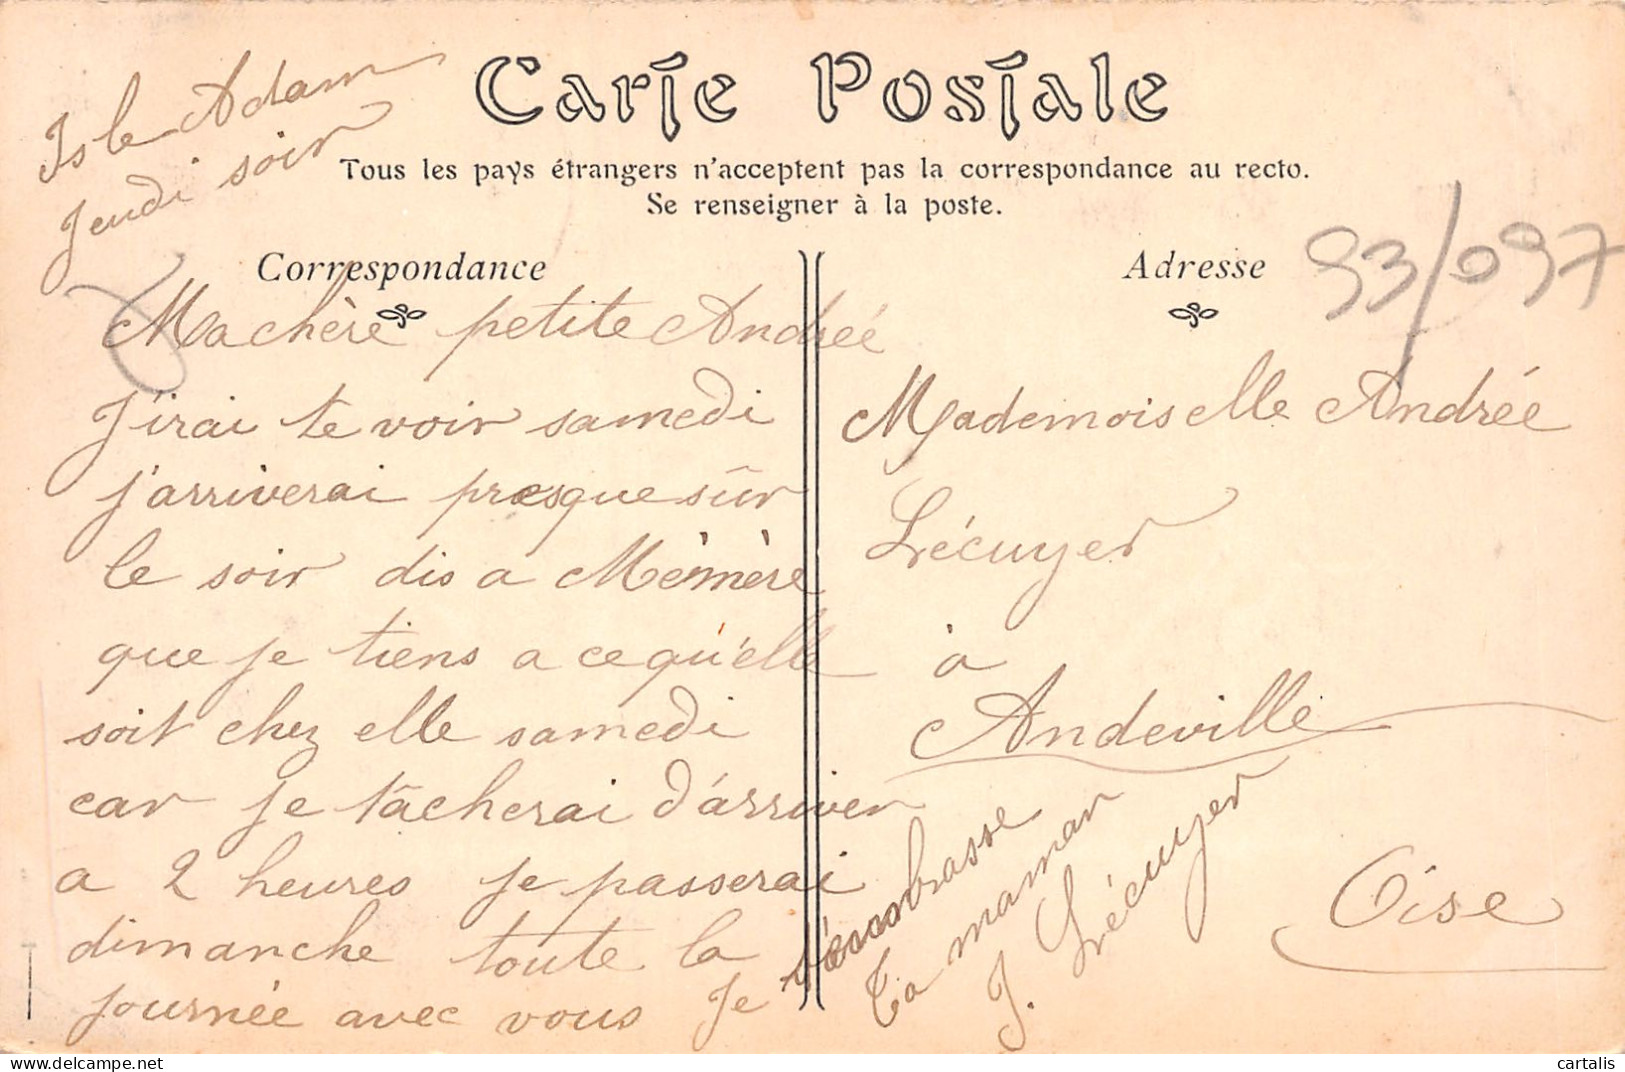 Isle Adam
Jeudi soir
Carte Postale
Tous les pays étrangers n'acceptent pas la correspondance au recto.
Se renseigner à la poste.
Correspondance
Ma chère petite Andrée
J'irai te voir samedi
j'arriverai presque sûr
le soir dis a Mémère
que je tiens a ce qu'elle
soit chez elle samedi
car je tâcherai d'arriver
a 2 heures je passerai
dimanche toute la
journée avec vous Je
t'embrasse
Ta maman
J. Lécuyer
Adresse
93/097
Mademoiselle Andrée
Lécuyer
à
Andeville
Oise
cartalis